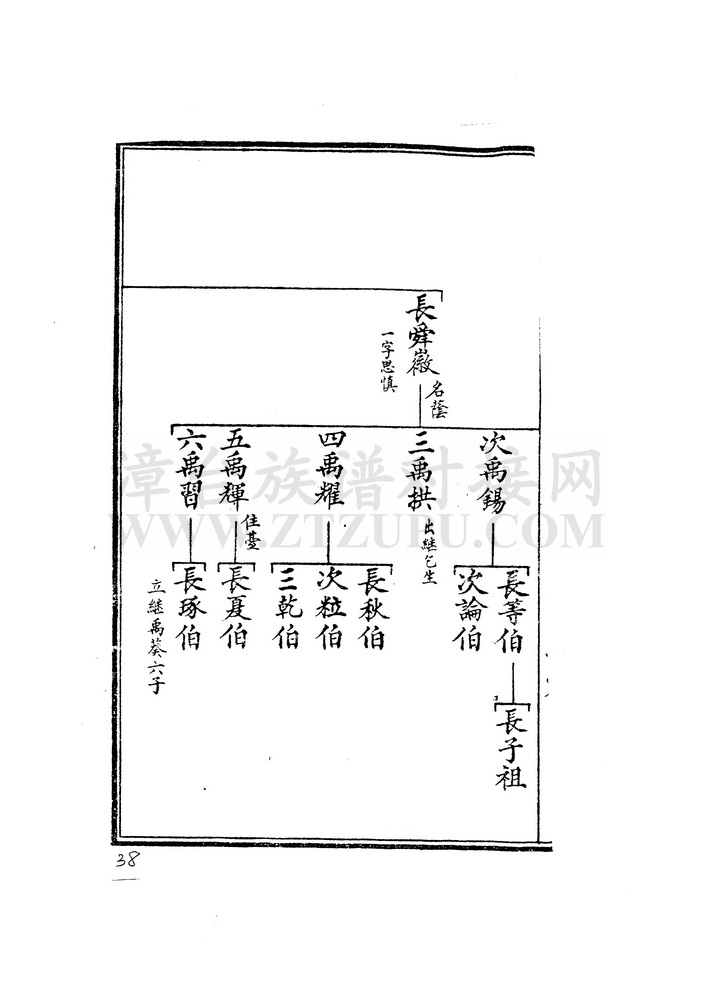 長舜徽
名蔭
一字思慎
次禹錫
三禹拱
出继乞生
四禹耀
五禹輝
住臺
六禹習
長等伯
次論伯
長秋伯
次粒伯
三乾伯
長夏伯
長琢伯
立継禹葵六子
長子祖
漳台族谱对接网
WWW.ZTZUPU.COM
38